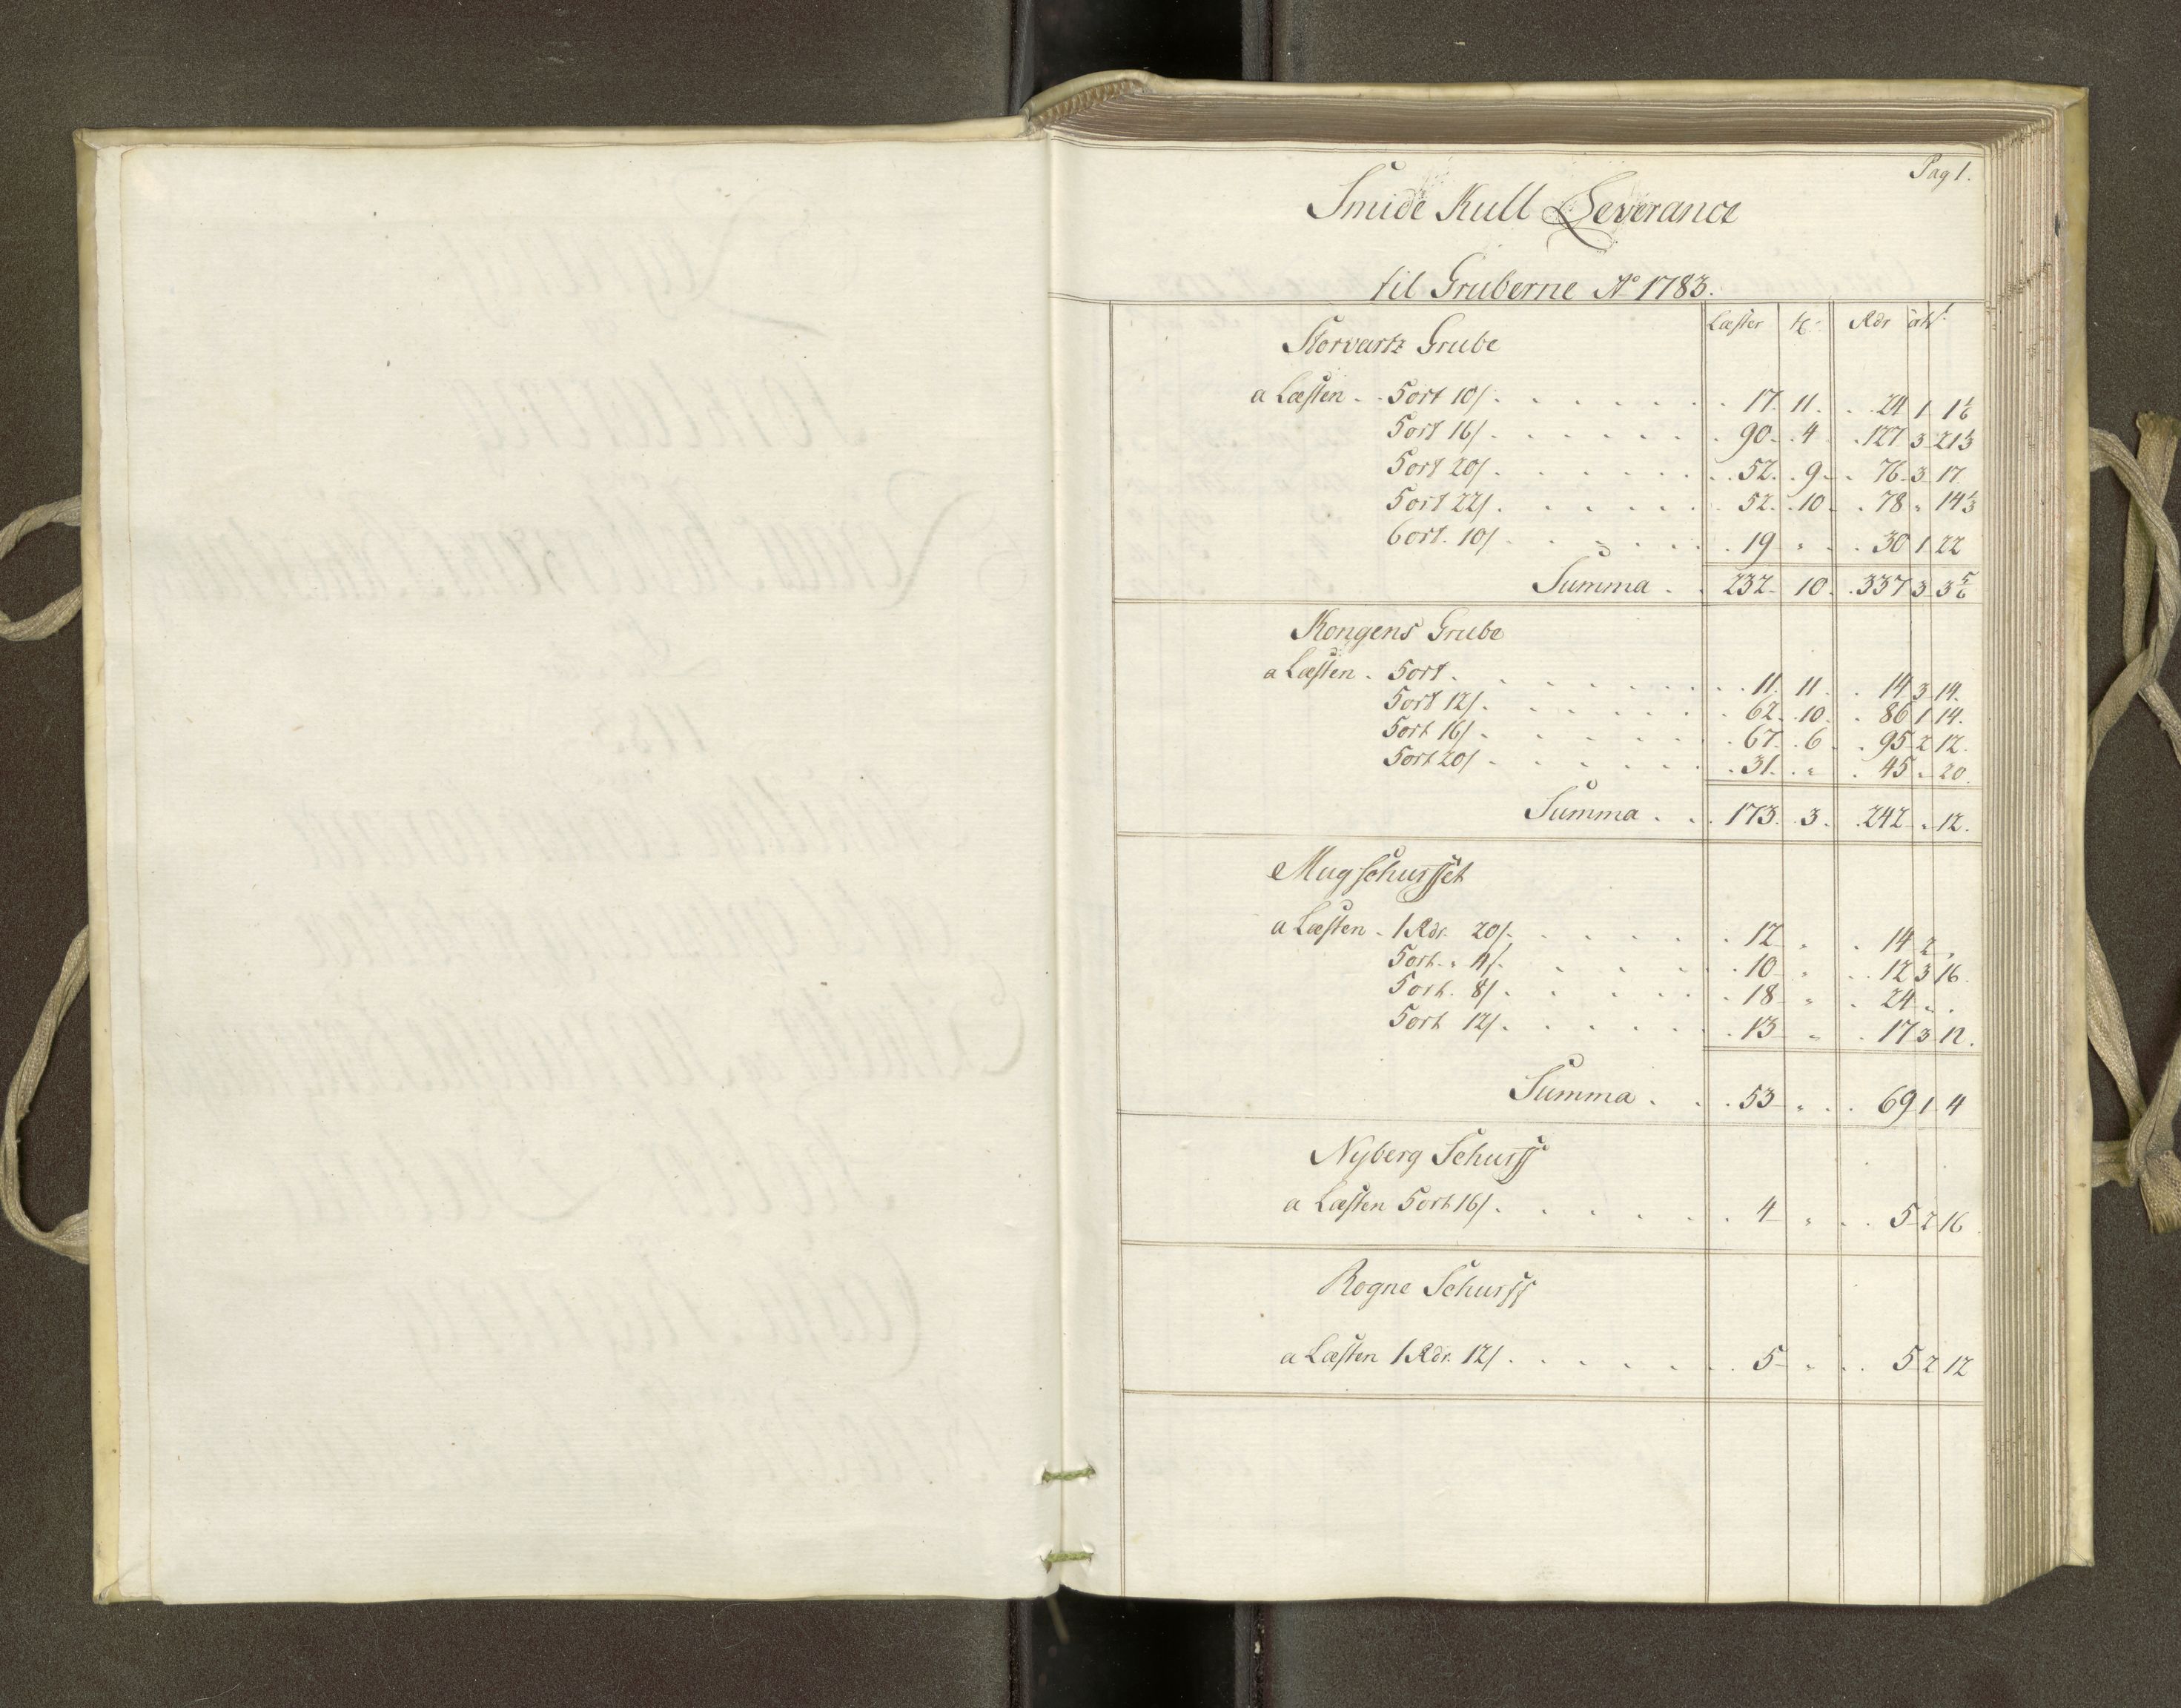 Pag 1.
Smide Kull Leverance
til Gruberne Aº 1783.
Læster | tr: | Rdr | ort | ß
Storvartz Grube
a Læsten . . 5 ort 10ß . . . 17. 11. . . 24 1 1½
5 ort 16ß . . . 90. . 4 . 127 3 21⅓
5 ort 20ß . . . 52. . 9 . . 76 3 17
5 ort 22ß . . . 52. . 10 . . 78 " 14⅓
6 ort. 10ß . . . 19 " . . 30 1 22
Summa . . 232 10 . 337 3 3⅚
Kongens Grube
a Læsten . 5 ort . . . 11. 11 . . 14 3 14.
5 ort 12ß . . . 62. . 10. . 86 1 14.
5 ort 16ß . . . 67. . 6 . . 95 2 12.
5 ort 20ß . . . 31. . " . 45 " 20.
Summa . . 173. . 3. . 242 " 12.
Mugschursset
a Læsten . 1 Rdr. 20ß . . . 12 " . 14 2 "
5 ort . " 4ß . . . 10 " . . 12 3 16.
5 ort. 8ß . . . 18 " . 24 " .
5 ort 12ß . . . 13 " . 17 3 12.
Summa . . 53 " . . 69 1 4
Nyberg Schurff
a Læsten 5 ort 16ß . . . 4 " . . 5 2 16.
Rogne Schurff
a Læsten 1 Rdr. 12ß . . . 5 " . . 5 2 12